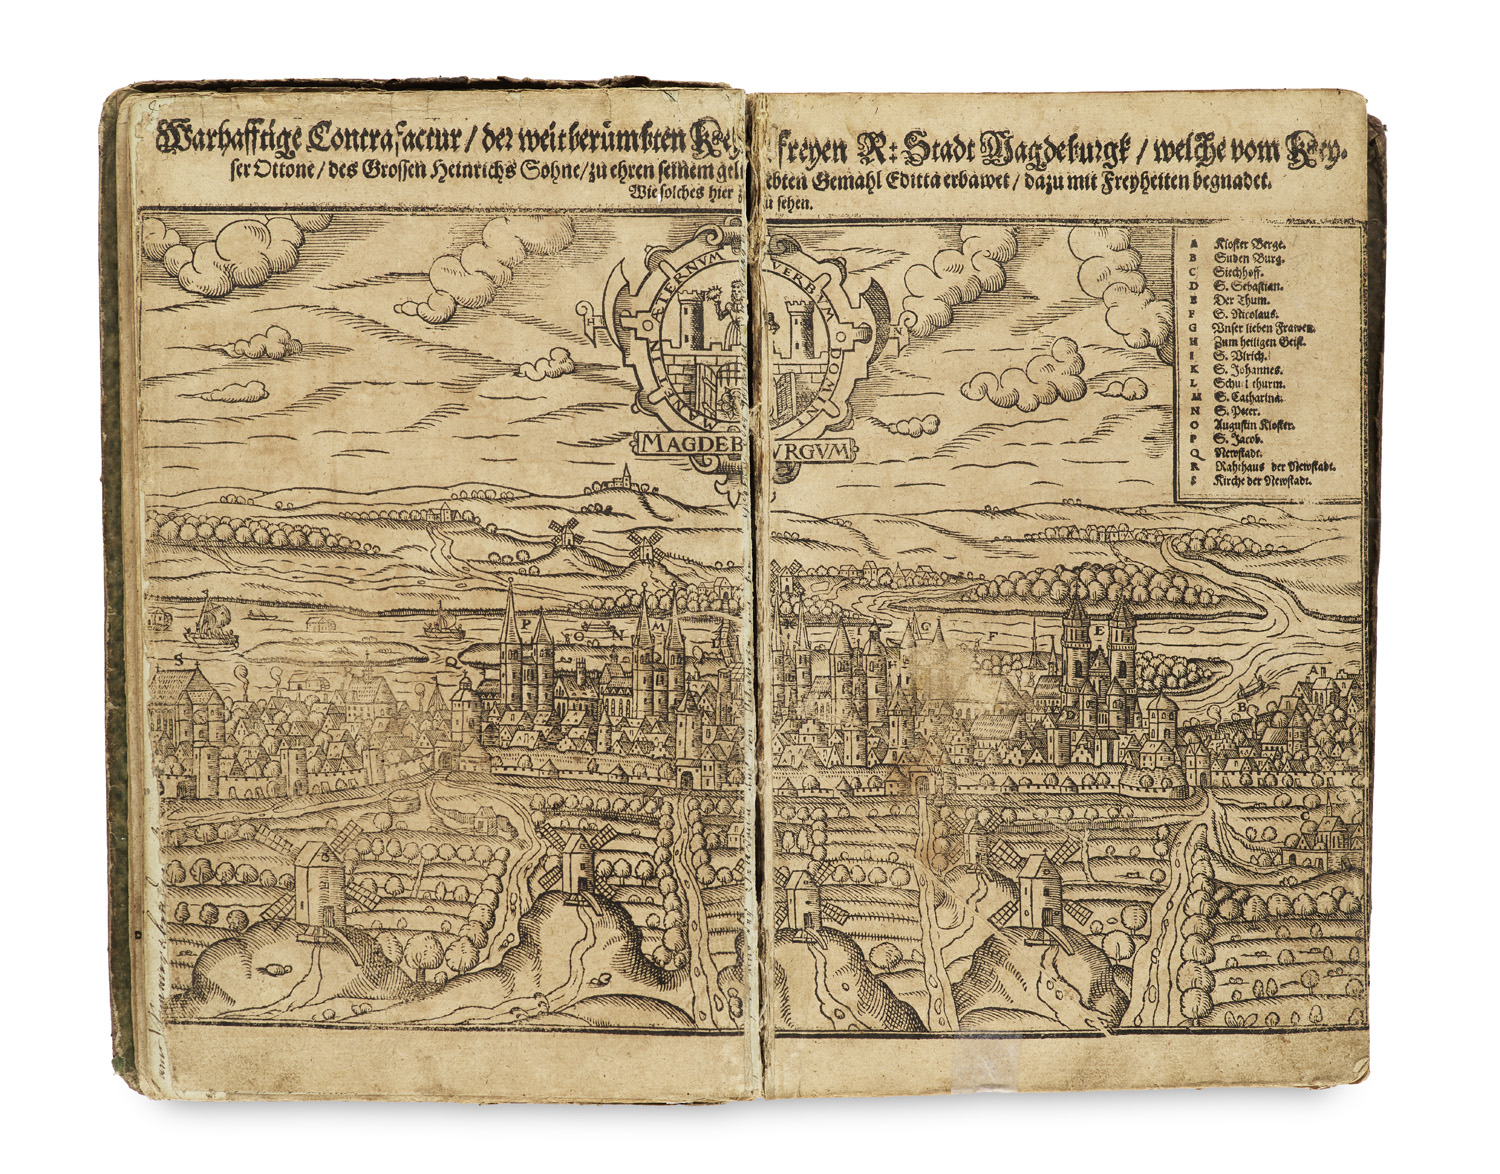 Warhafftige Contrafactur / der weitberümbten Key freyen R: Stadt Magdeburgk / welche vom Key-
ser Ottone / des Grossen Heinrichs Sohne / zu ehren seinem geliebten Gemahl Editta erbawet / dazu mit Freyheiten begnadet.
Wie solches hier zu sehen.
MANET IN ÆTERNVM
VERBVM DOMINI
H
N
MAGDEBVRGVM
A Kloster Berge.
B Suden Burg.
C Siechhoff.
D S. Sebastian.
E Der Thum.
F S. Nicolaus.
G Vnser lieben Frawen.
H Zum heiligen Geist.
I S. Vlrich.
K S. Johannes.
L Schul thurm.
M S. Catharina.
N S. Peter.
O Augustin Kloster.
P S. Jacob.
Q Newstadt.
R Rahthaus der Newstadt.
S Kirche der Newstadt.
P
O
N
M
L
K
G
F
E
S
D
A
B
C